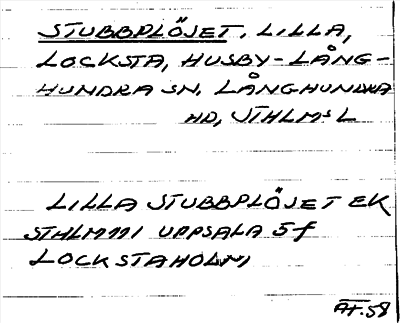 STUBBPLÖJET, LILLA,
LOCKSTA, HUSBY-LÅNG-
HUNDRA SN. LÅNGHUNDRA
HD, STHLMS L
LILLA STUBBPLÖJET EK
STHLM 111 UPPSALA 5f
LOCKSTAHOLM
ÅT. 58